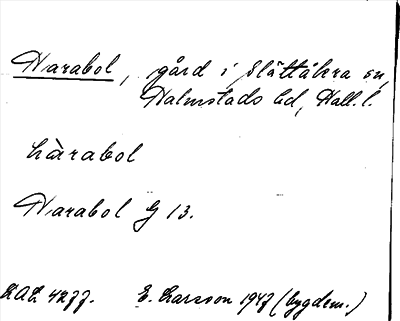 Harabol, gård i Slättåkra sn,
Halmstads hd, Hall. l.
hàrabol
Harabol G 13.
LAL 4277.   E. Larsson 1947 (bygdem.)